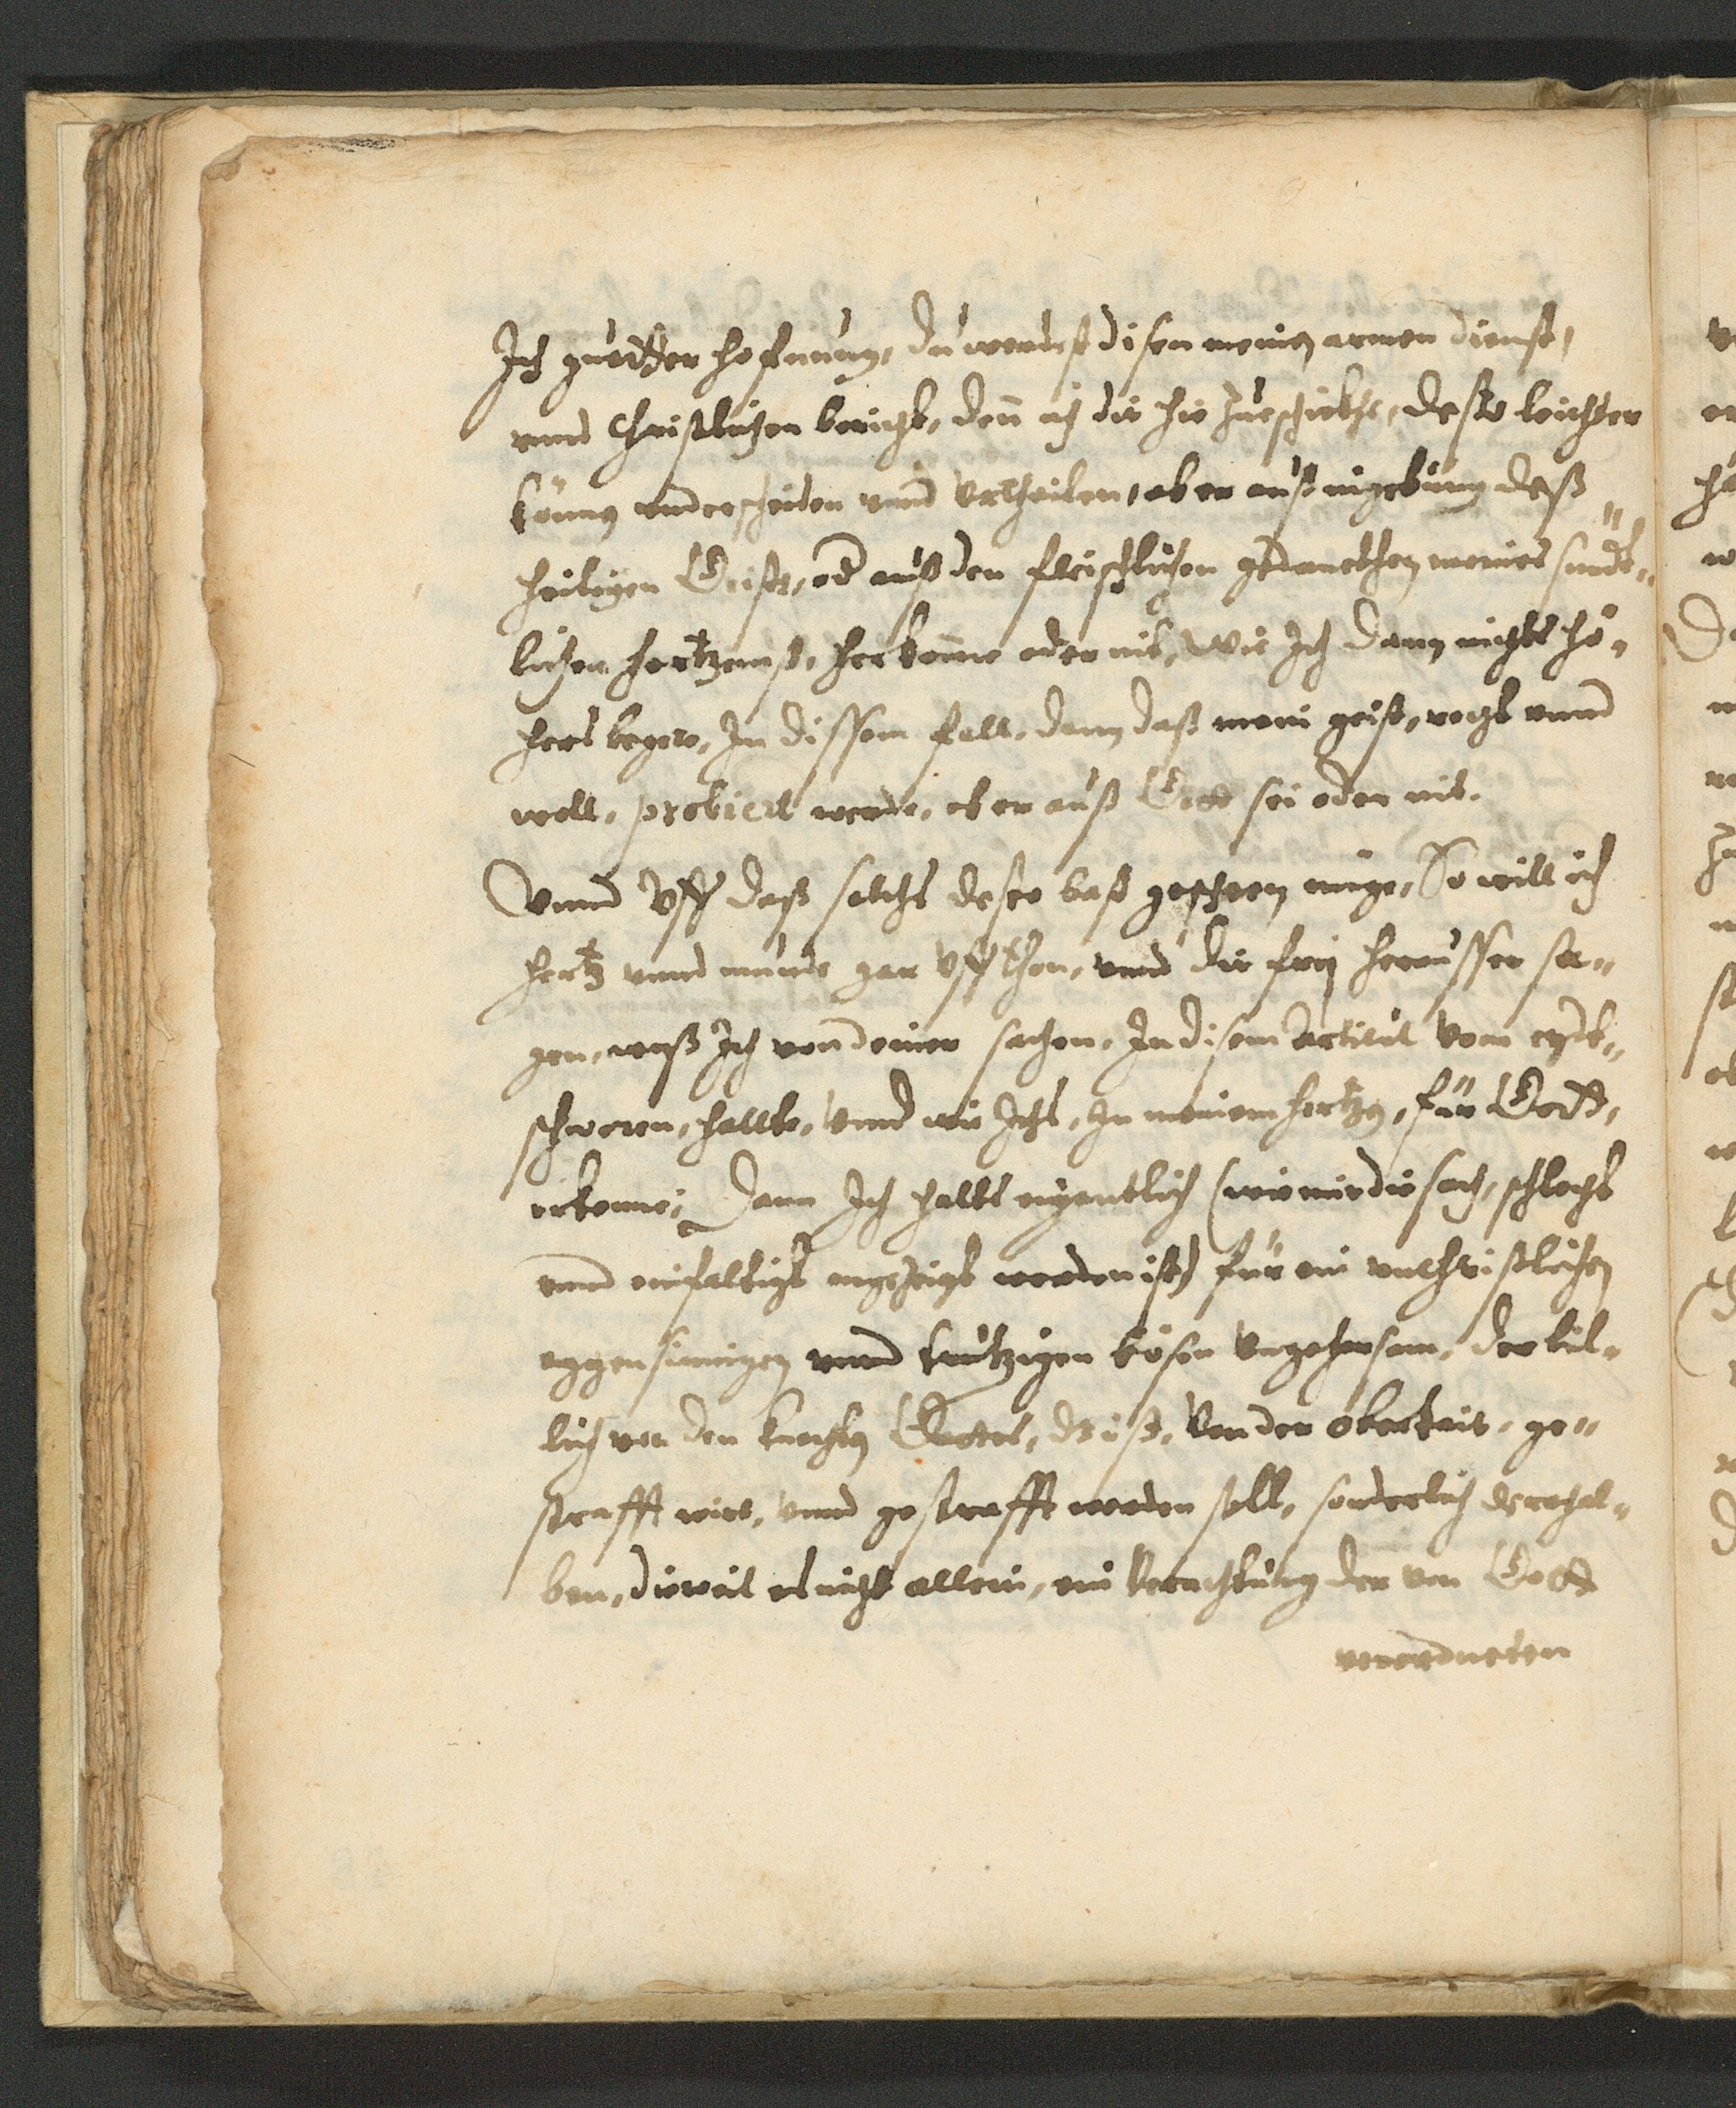 Ich guotter hofnung, du werdest disen meinen armen dienst,
vnnd Christlichen bericht, den ich dir hie zueschickhe, desto leichter
können vnderscheiden vnnd Vrtheilen, ob er auß ingebung deß
heiligen Geists, od auß den fleischlichen gedanckhen meines sündt„
lichen hertzens, herkomme oder nit, Wie Ich dann nichts hö„
hers beger, In dissem fall, dann daß mein geist, recht vnnd
woll, probiert werde, ob er auß Gott sei oder nit.
Vnnd Vff daß solchs desto baß geschehen müge, So will ich
hertz vnnd munde gar Vffthon, vnnd dir frij herausser sa„
gen, waß Ich von deiner sachen, In disem Articul vom eydt„
schweren, hallte, vnnd wie Ichs, In meinem hertzen, für Gott,
erkenne; Dann Ich hallts eigentlich (wie mir die sach, schlecht
vnnd einfaltigst angezeigt worden ist) für ein vnchristlichen
eggensinnigen vnnd trutzigen bösen Vngehorsam, der bil„
lich von den knechten Gottes, dz ist, Von der oberkait, ge„
strafft wirt, vnnd gestrafft werden soll, sonderlich derohal„
ben, dieweil es nicht allein, ein Verachtung der von Gott
verordneten